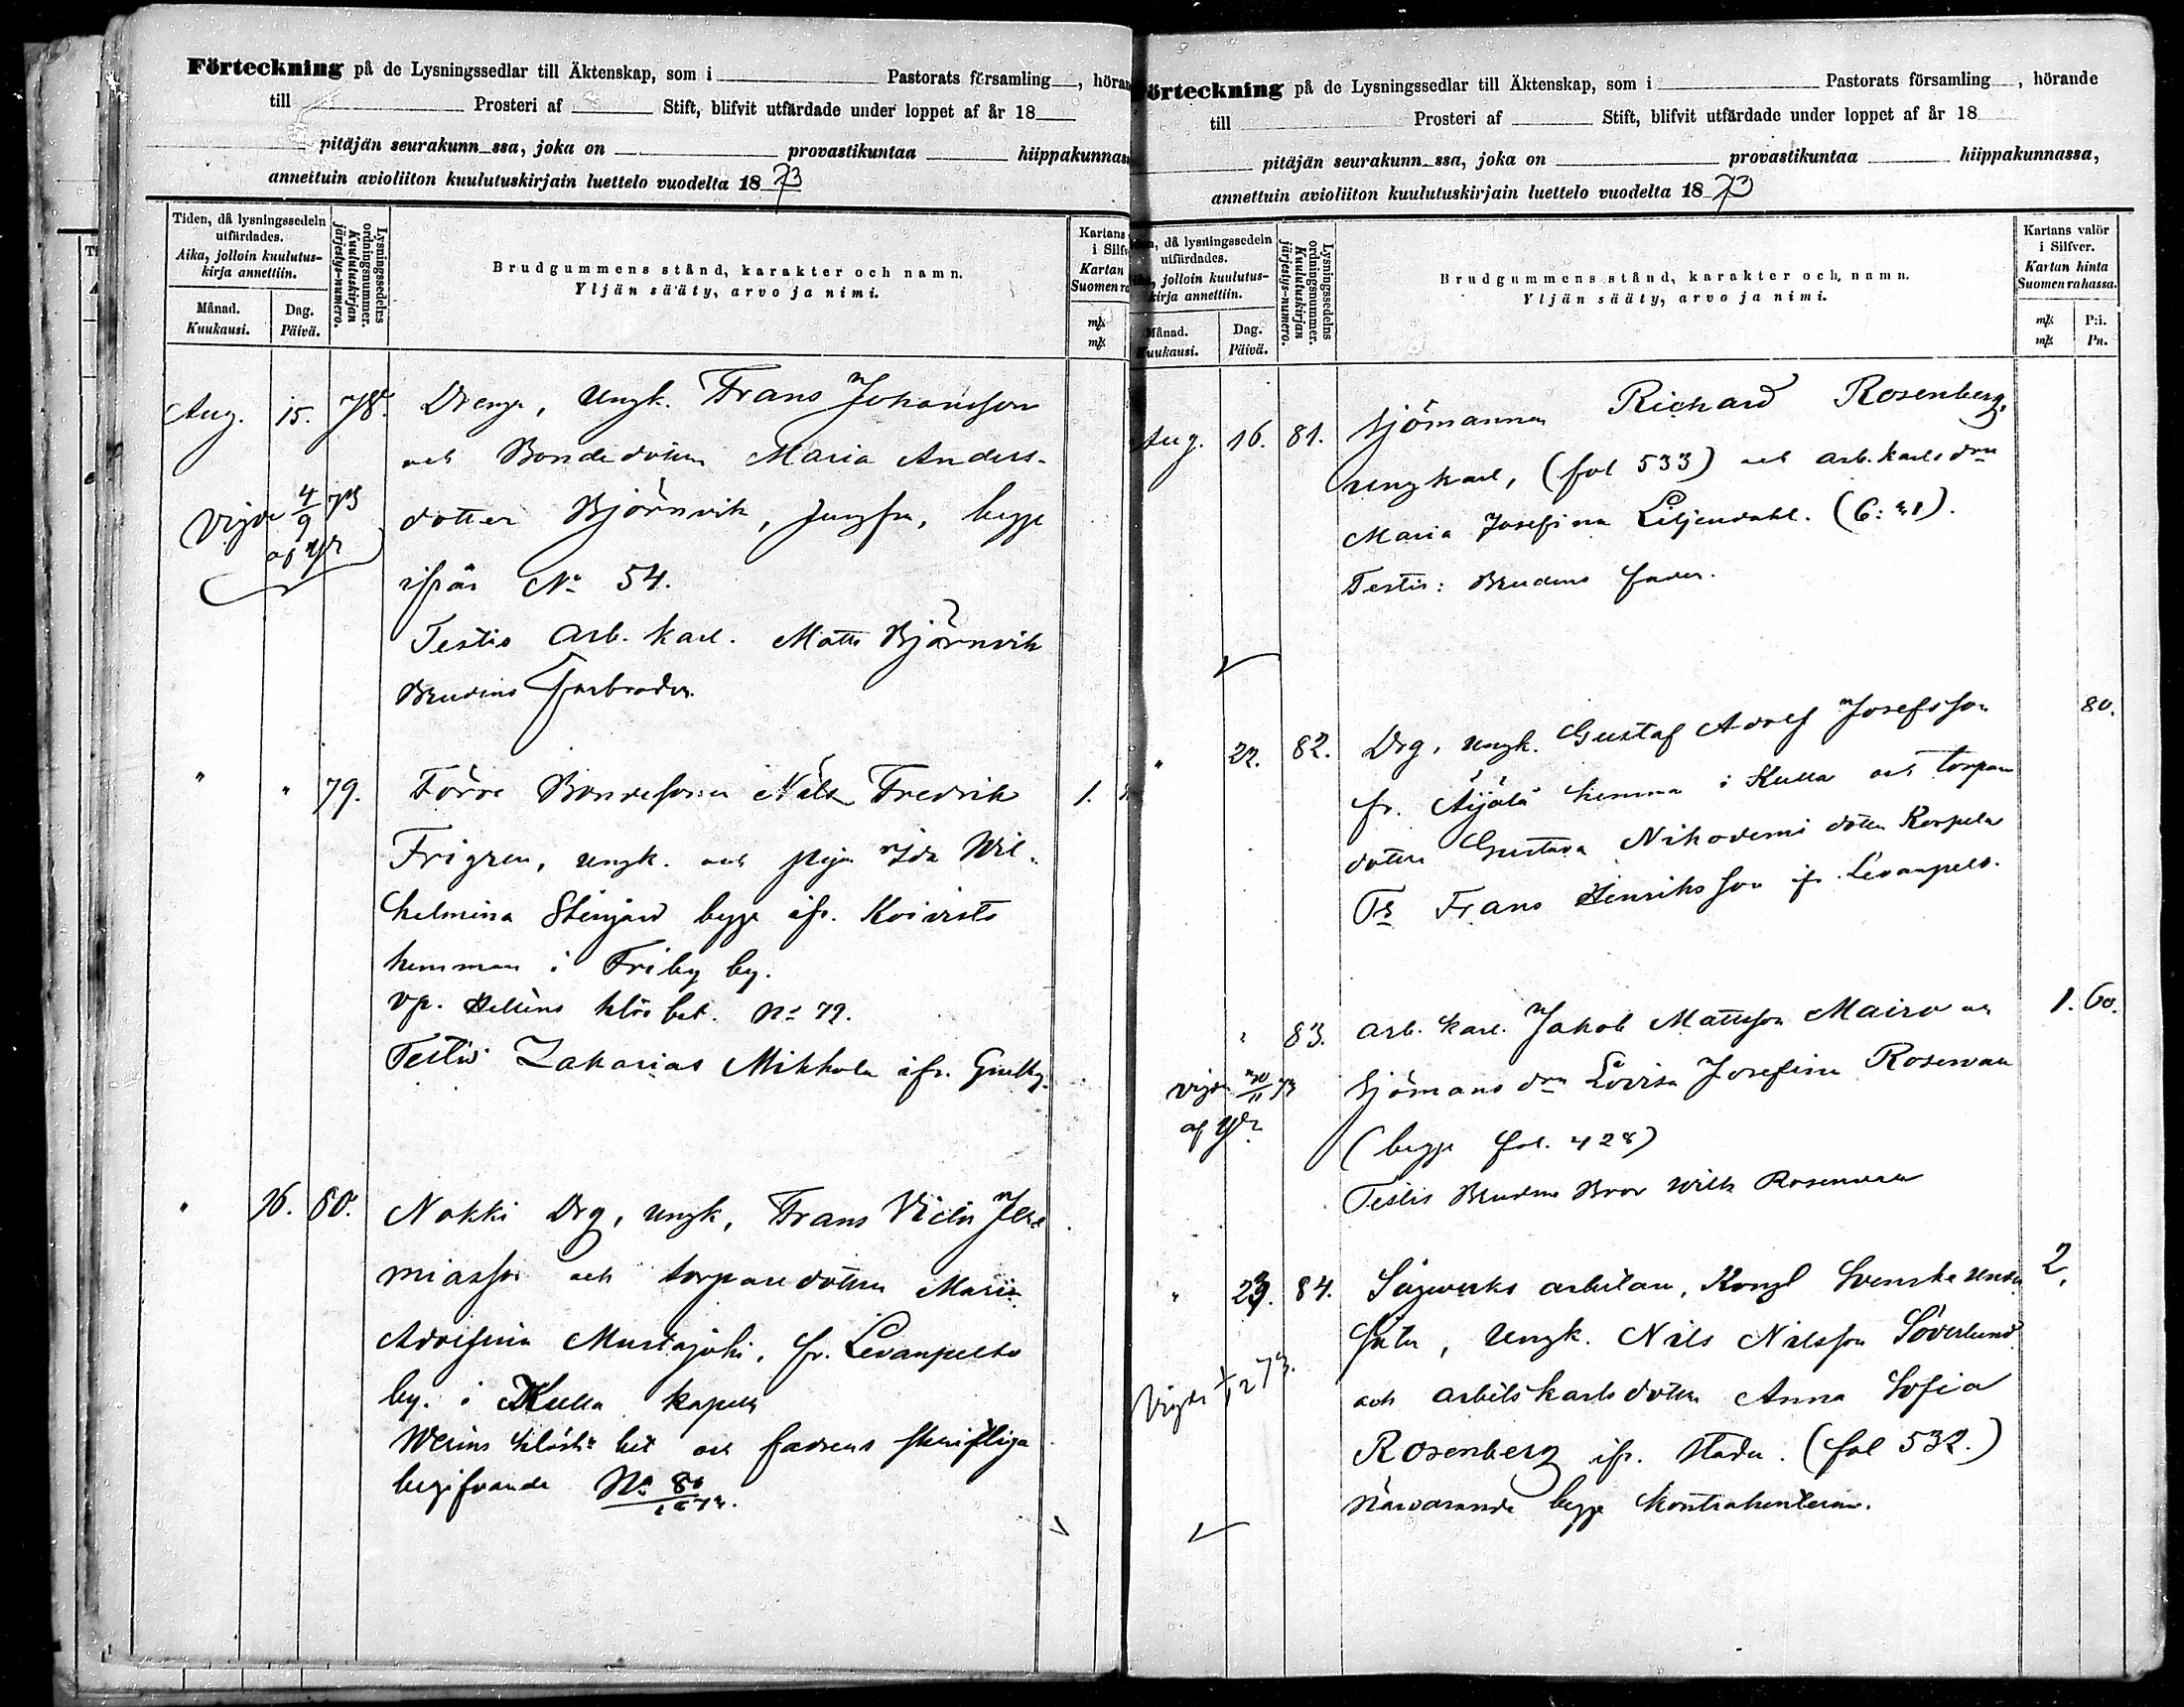 Förteckning på de Lysningssedlar till Äktenskap, som i Pastorats församling, höran
till Prosteri af Stift, blifvit utfärdade under loppet af år 18
pitäjän seurakunn_ssa, joka on provastikuntaa hiippakunnas
annettuin avioliiton kuulutuskirjain luettelo vuodelta 18 73
Tiden, då lysningssedeln utfärdades.
Aika, jolloin kuulutus-kirja annettiin.
Månad. Kuukausi.
Dag. Päivä.
Lysningssedelns ordningsnummer.
Kuulutuskirjan järjestys-numero.
Brudgummens stånd, karakter och namn.
Yljän sääty, arvo ja nimi.
Kartans
i Silfv
Kartan
Suomen ra
mk
mk
Aug. 15. 78. Dreng, Ungk. Frans Johansson
och Bondedottern Maria Anders-
Vigde 4/9 73 dotter Björnvik, Jungfru, begge
ifrån No 54.
Testis Arb. karl. Matts Björnvik
Brudens Farbroder.
" " 79. Förre Bondesonen Nils Fredrik 1.
Frigren, ungk. och pigan Ida Wil-
helmina Stenjard begge ifr. Koivisto
hemman i Friby by.
vp. Helléns bet. No 79.
Testis Zakarias Mikkola ifr.
" 16. 80. Nokki Drg, ungk, Frans Victor Jere
miasson och torparedottern Maria
Adolfina Mustajoki, fr. Levanpelto
by. i Kulla kapell
bet och fadrens skriftliga
begifvande No 80
Förteckning på de Lysningssedlar till Äktenskap, som i Pastorats församling, hörande
till Prosteri af Stift, blifvit utfärdade under loppet af år 18
pitäjän seurakunn_ssa, joka on provastikuntaa hiippakunnassa,
annettuin avioliiton kuulutuskirjain luettelo vuodelta 18 73
då lysningssedeln utfärdades.
jolloin kuulutus-kirja annettiin.
Månad. Kuukausi.
Dag. Päivä.
Lysningssedelns ordningsnummer.
Kuulutuskirjan järjestys-numero.
Brudgummens stånd, karakter och, namn.
Yljän sääty, arvo ja nimi.
Kartans valör
i Silfver.
Kartan hinta
Suomen rahassa.
mk P:i.
mk Pn.
Aug. 16. 81. Sjömannen Richard Rosenberg,
ungkarl, (fol 533) och arb.karls drn
Maria Josefina Liljendahl. (6:21).
Testis: Brudens fader.
" 22. 82. Drg, ungk. Gustaf Adolf Josefsson 80.
fr. Äijälä hemman i Kulla och torpare
dottern Gustava Nikodemi dotter Korpela
Ts Frans Henriksson ifr. Levanpelto.
" 83. Arb. karl. Jakob Mattsson Mairo och 1. 60.
Vigde 30/11 73 Sjömans drn Lovisa Josefina Rosenvall
(begge fol. 428)
Testis Brudens Bror Wilh Rosenvall
" 23. 84. Sågverks arbetaren, Kongl Svenske Under 2.
såten, Ungk. Nils Nilsson Söderlund
Vigde 73. och arbetskarlsdottern Anna Sofia
Rosenberg ifr. staden. (fol 532.)
Närvarande begge kontrahenterna.